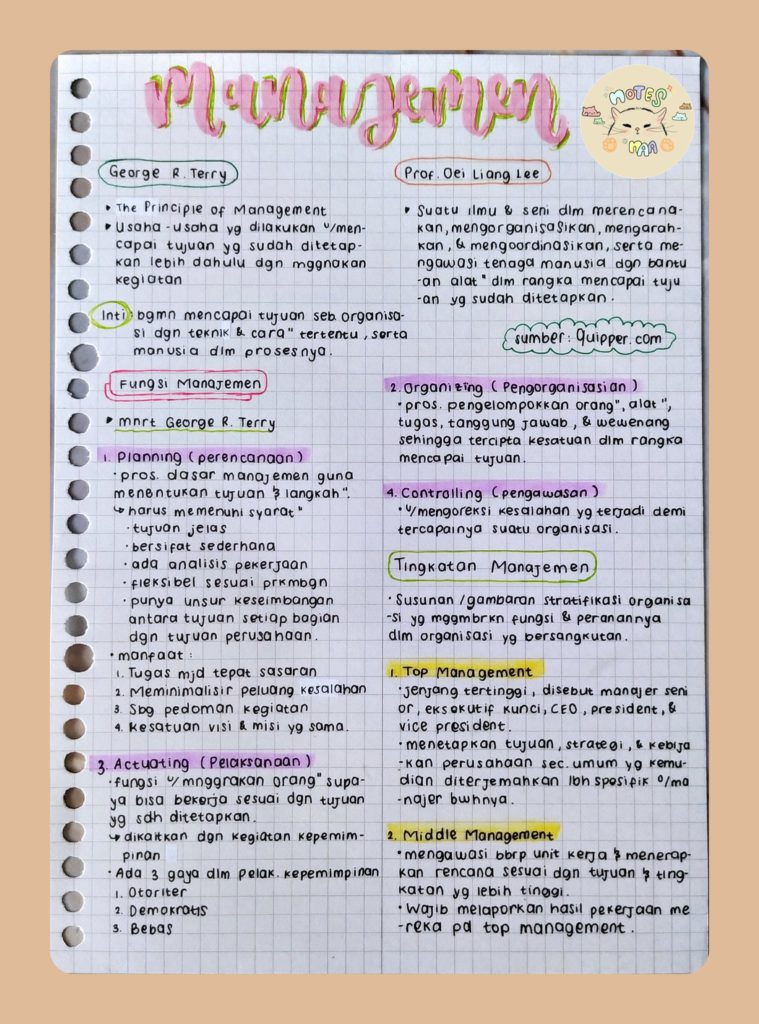 Manajemen
NOTES
MAA
George R. Terry
▸ The Principle of Management
▸ Usaha-usaha yg dilakukan u/men-
capai tujuan yg sudah ditetap-
kan lebih dahulu dgn mggnakan
kegiatan
Prof. Oei Liang Lee
▸ Suatu ilmu & seni dlm merencana-
kan, mengorganisasikan, mengarah-
kan, & mengoordinasikan, serta me-
ngawasi tenaga manusia dgn bantu
-an alat" dlm rangka mencapai tuju
-an yg sudah ditetapkan.
Inti: bgmn mencapai tujuan seb. organisa-
si dgn teknik & cara" tertentu, serta
manusia dlm prosesnya.
sumber: Quipper.com
Fungsi Manajemen
▸ mnrt George R. Terry
1. Planning (perencanaan)
• pros. dasar manajemen guna
menentukan tujuan & langkah".
↳ harus memenuhi syarat"
• tujuan jelas
• bersifat sederhana
• ada analisis pekerjaan
• fleksibel sesuai prkmbgn
• punya unsur keseimbangan
antara tujuan setiap bagian
dgn tujuan perusahaan.
• manfaat:
1. Tugas mjd tepat sasaran
2. Meminimalisir peluang kesalahan
3. Sbg pedoman kegiatan
4. Kesatuan visi & misi yg sama.
3. Actuating (Pelaksanaan)
• fungsi u/ mnggrakan orang" supa-
ya bisa bekerja sesuai dgn tujuan
yg sdh ditetapkan.
↳ dikaitkan dgn kegiatan kepemim-
pinan
• Ada 3 gaya dlm pelak. kepemimpinan
1. Otoriter
2. Demokratis
3. Bebas
2. Organizing (Pengorganisasian)
• pros. pengelompokkan orang", alat",
tugas, tanggung jawab, & wewenang
sehingga tercipta kesatuan dlm rangka
mencapai tujuan.
4. Controlling (pengawasan)
• u/mengoreksi kesalahan yg terjadi demi
tercapainya suatu organisasi.
Tingkatan Manajemen
• Susunan /gambaran stratifikasi organisa
-si yg mggmbrkn fungsi & peranannya
dlm organisasi yg bersangkutan.
1. Top Management
• jenjang tertinggi, disebut manajer seni
or, eksekutif kunci, CEO, president, &
vice president.
• menetapkan tujuan, strategi, & kebija
-kan perusahaan sec. umum yg kemu-
dian diterjemahkan lbh spesifik o/ma
-najer bwhnya.
2. Middle Management
• mengawasi bbrp unit kerja & menerap-
kan rencana sesuai dgn tujuan & ting-
katan yg lebih tinggi.
• Wajib melaporkan hasil pekerjaan me
-reka pd top management.